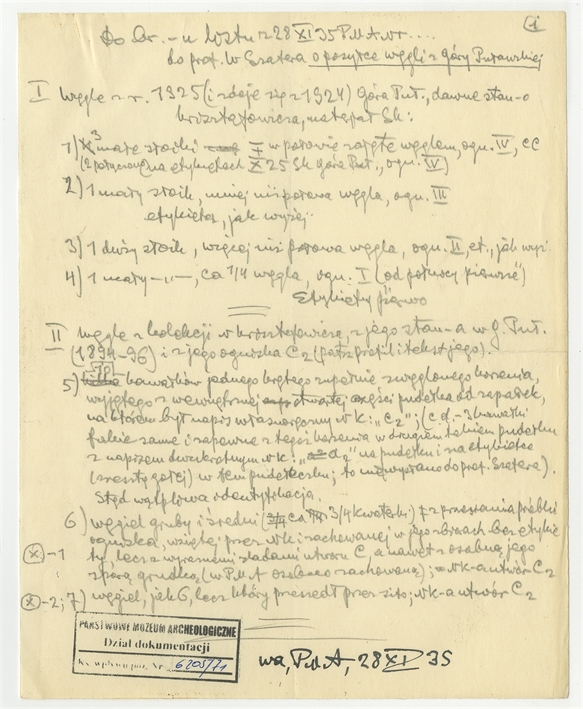 1
Do Nr. - u listu z 28 XI 35 P.M.A. wr ....
do prof. W Szafera o posyłce węgli z Góry Puławskiej
I Węgle z r. 1925 (i zdaje się z 1924) Góra Puł., dawne stan-o
Krisztafowicza, następał Sk:
1) 3 małe słoiki w połowie zajęte węglem, ogn. IV, CC
(2 połączone) na etykietach X 25 Sk Góra Puł., ogn. IV)
2) 1 mały słoik, mniej niż połowa węgla, ogn. III
etykieta, jak wyżej.
3) 1 duży słoik, więcej niż połowa węgla, ogn. II, et., jak wyż.
4) 1 mały -"-, ca 1/4 węgla, ogn. I (od północy pierwsze)
Etykiety
II Węgle z kolekcji N Krisztafowicza, z jego stan-a w G. Puł.
(1894-96) i z jego ogniska C2 (patrz profil i tekst jego).
5) kawałków jednego krętego zupełnie zwęglonego korzenia,
wyjętego z wewnętrznej części pudełka od zapałek,
na którem był napis własnoręczny NK: „C2"; (c.d. - 3 kawałki
takie same i zapewne z tegoż korzenia w drugiem takiem pudełku
z napisem dwukrotnym NK: „d2" na pudełku i na etykietce
(zresztą gołej) w tem pudełeczku; to nie wysłano do prof. Szafera).
Stąd wątpliwa identyfikacja.
6) węgiel gruby i średni (ca 3/4 kwaterki) z przesiania próbki
ogniska, wziętej przez NK i zachowanej w jego zbiorach bez etykie
(x) -1 ty, lecz z wyraźnemi śladami utworu C, a nawet z osobną jego
sporą grudką (w P.M.A osobno zachowaną); = NK-a utwór C2
(x) -2; 7) węgiel, jak 6, lecz który przeszedł przez sito; NK-a utwór C2
PAŃSTWOWE MUZEUM ARCHEOLOGICZNE
Dział dokumentacji
Ks. wpływu poz. Nr. 6205/71
Wa, P.M.A, 28 XI 35